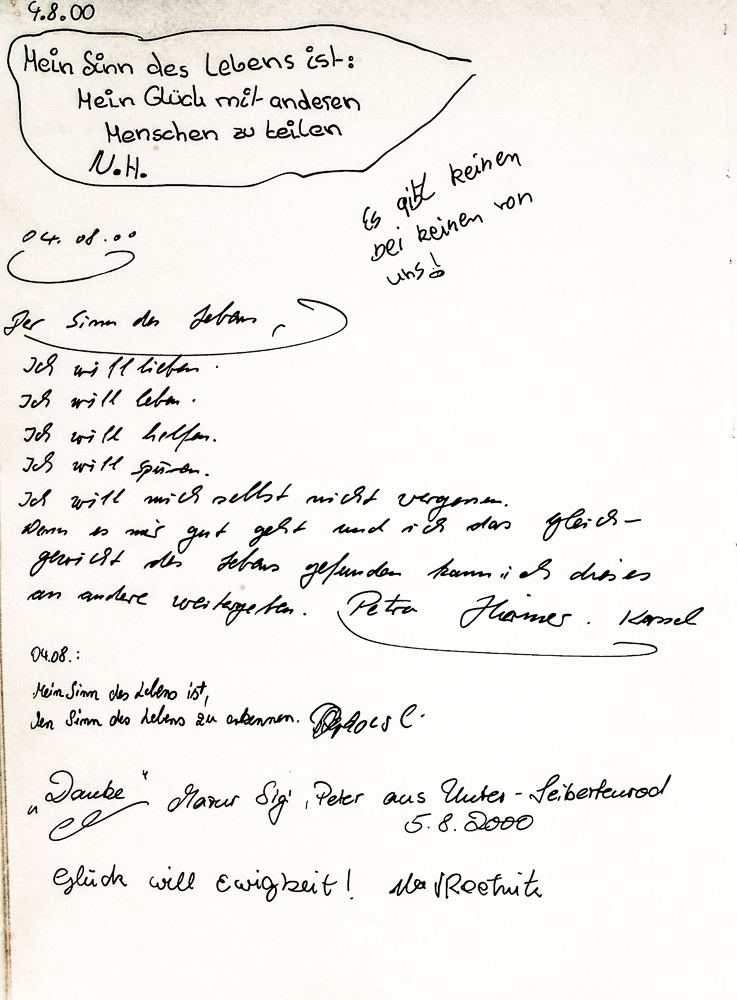 4.8.00
Mein Sinn des Lebens ist:
Mein Glück mit anderen
Menschen zu teilen
N.H.
Es gibt keinen
bei keinen von
uns!
04.08.00
Der Sinn des Lebens,
Ich will lieben.
Ich will leben.
Ich will helfen.
Ich will spüren.
Ich will mich selbst nicht vergessen.
Wenn es mir gut geht und ich das Gleich-
gewicht des Lebens gefunden kann ich dieses
an andere weitergeben. Petra Kassel
04.08.:
Mein Sinn des Lebens ist,
den Sinn des Lebens zu erkennen.
"Danke" Sigi, Peter aus Unter-Seibertenrod
5.8.2000
Glück will Ewigkeit!